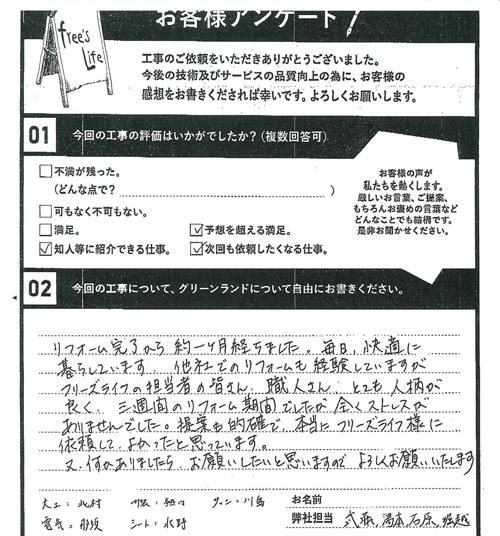 お客様アンケート!
free's
Life
工事のご依頼をいただきありがとうございました。
今後の技術及びサービスの品質向上の為に、お客様の
感想をお書きくだされば幸いです。よろしくお願いします。
01 今回の工事の評価はいかがでしたか?(複数回答可)
不満が残った。
(どんな点で? )
可もなく不可もない。
満足。 予想を超える満足。
知人等に紹介できる仕事。 次回も依頼したくなる仕事。
お客様の声が
私たちを熱くします。
厳しいお言葉、ご提案、
もちろんお褒めの言葉など
どんなことでも結構です。
是非お聞かせください。
02 今回の工事について、グリーンランドについて自由にお書きください。
リフォーム完了から約一ヶ月経ちました。毎日、快適に
暮らしています。他社でのリフォームも経験していますが
フリーズライフの担当者の皆さん、職人さん、とても人柄が
良く、三週間のリフォーム期間でしたが全くストレスが
ありませんでした。提案も的確で、本当にフリーズライフ様に
依頼して、よかったと思っています。
又、何かありましたら、お願いしたいと思いますので よろしくお願いいたします
大工:北村 サッシ:川島
電気: シート:水野
お名前
弊社担当 武藤、湯本、石原、堀越